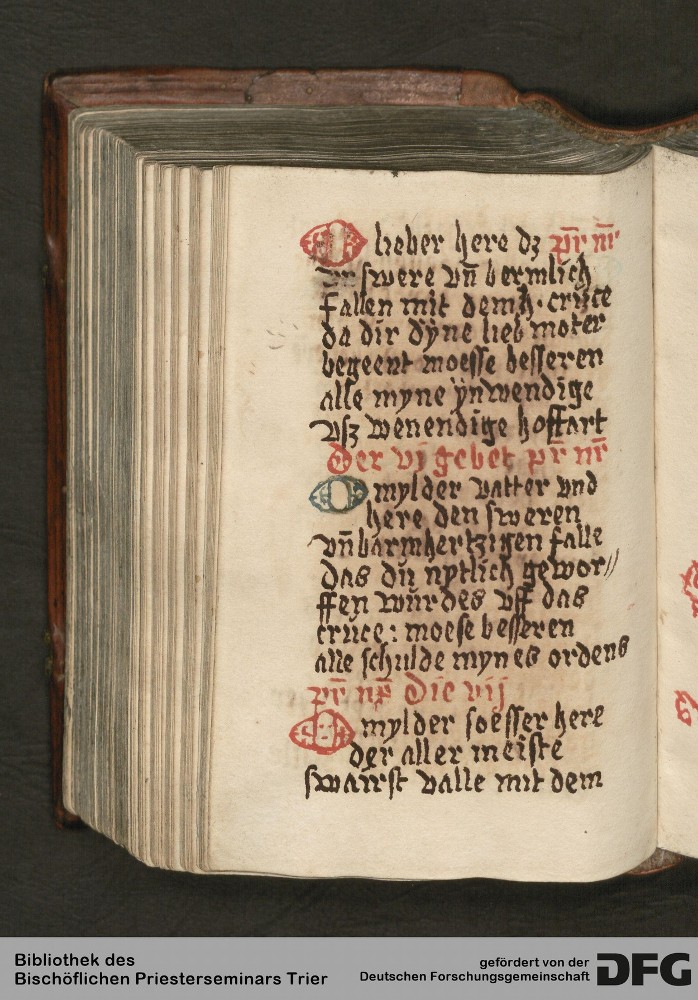 O lieber here dz pr̄ nr̄
dn swere vn̄ bermlich
fallen mit dem h. crüce
da dir dyne lieb moter
begeent moesse besseren
alle myne ynwendige
vsz wenendige hoffart
Der vj gebet pr̄ nr̄
O mylder vatter vnd
here den sweren
vn̄barmhertzigen falle
das du nytlich gewor//
ffen würdes vff das
crüce: moese besseren
alle schulde mynes ordens
pr̄ nr̄ Die vij
O mylder soesser here
der aller meiste
swairst valle mit dem
Bibliothek des
Bischöflichen Priesterseminars Trier
gefördert von der
Deutschen Forschungsgemeinschaft
DFG